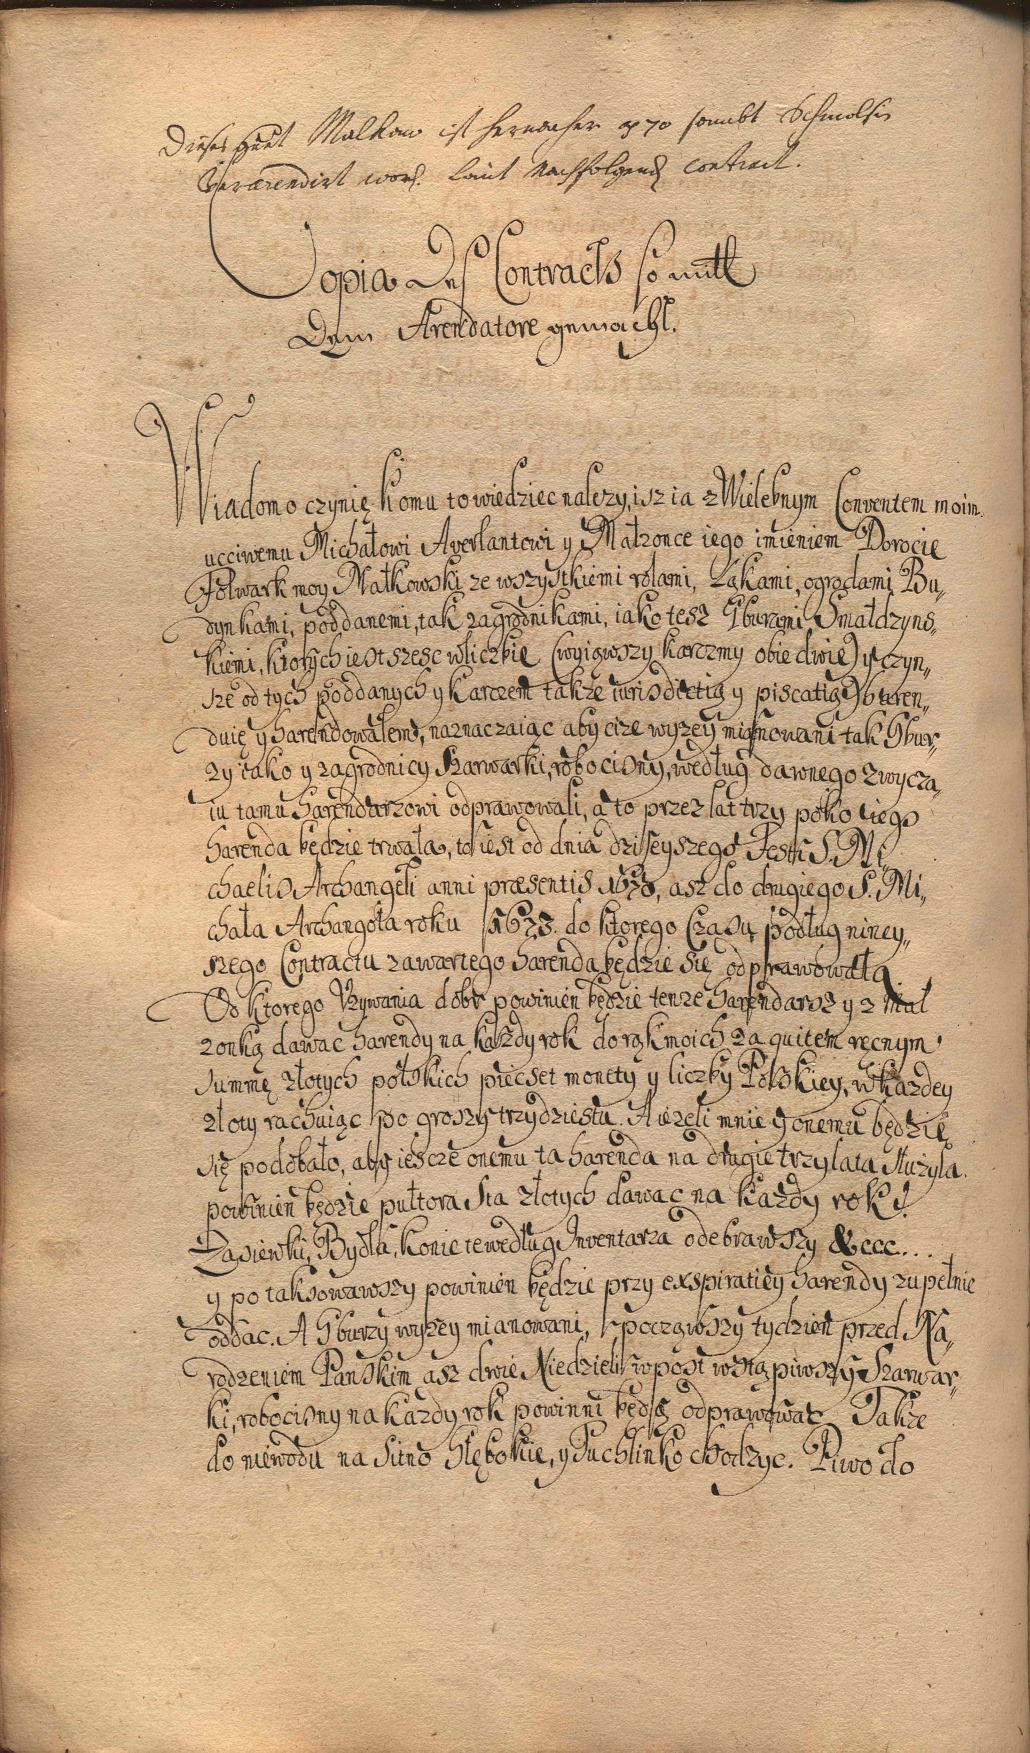 Dieses gutt Malkaw ist hernacher ao 70 sambt Schmolsin
verarendirt word. laut nachfolgend contract.
Copia Des Contracts so mitt
Dem Arendatore gemacht.
Wiadomo czynię komu to wiedziec nalezy, isz ia z Wielebnym Conventem moim
ucciwemu Michałowi Averlantowi y Małzonce iego imieniem Dorocie
Folwark moy Małkowski ze wszystkiemi rolami, Łąkami, ogrodami, Bu„
dynkami, poddanemi, tak zagrodnikami, iako tesz Gburami Smałdzyns„
kiemi, ktorych iest szesc wliczbie (wyiąwszy karczmy obie dwie) y czyn„
sze od tych poddanych y karczem takze iurisdictią y piscatią) aren„
duię y harendowałem, naznaczaiąc aby cize wyzey mianowani tak Gbur„
zy iako y zagrodnicy Szarwarki, robocisny, według dawnego zwycza„
iu tamu harendarzowi odprawowali, a to przez lat trzy poko iego
harenda będzie trwała, to iest od dnia dzisieyszego Festi S. Mi„
chaelis Archangeli anni præsentis 1670, asz do drugiego S. Mi„
chała Archangoła roku 1673. do ktorego Czasu podług niniey„
szego Contractu zawartego harenda będzie się odprawowała
Od ktorego Vzywania dobr powinien będzie tenze harendarsz y z mał
zonką dawac harendy na kazdy rok do rąk moich za quitem ręcznym
summę złotych polskich piecset monety y liczby Polskiey, w kazdey
złoty rachuiąc po groszy trzydziestu. A iezeli mnie y onemu będzie
się podobało, aby iescze onemu ta harenda na drugie trzy lata służyla.
powinien będzie pułtora sta złotych dawac na kazdy rok
Zasiewki, Bydła, konie te według Inventarza odebrawszy &ccc...
y potaksowawszy powinien będzie przy exspiratiey harendy zupełnie
oddac. A Gburzy wyzey mianowani, począwszy tydzien przed Na„
rodzeniem Panskim asz dwie Niedzieli w post wstąpiwszy Szarwar„
ki, robocisny na kazdy rok powinni będą odprawowac Takze
do niewodu na Sitno Głębokie, y Suchlinko chodzyc. Piwo do